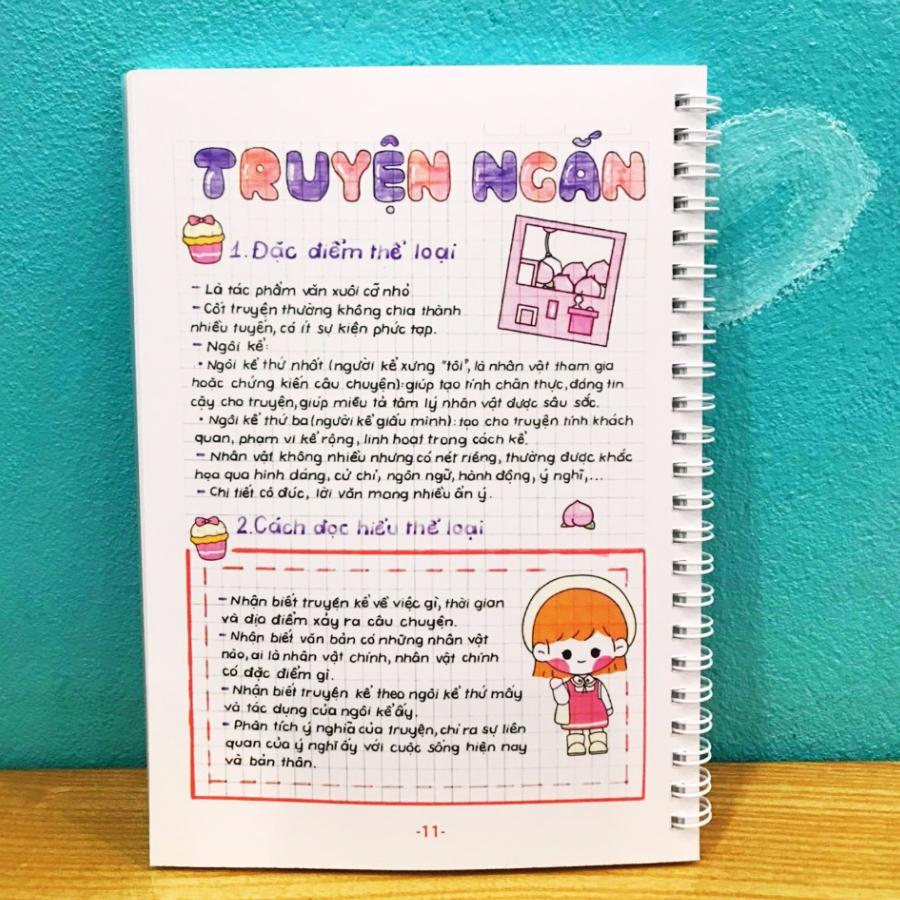 TRUYỆN NGẮN
1. Đặc điểm thể loại
- Là tác phẩm văn xuôi cỡ nhỏ
- Cốt truyện thường không chia thành
nhiều tuyến, có ít sự kiện phức tạp.
- Ngôi kể:
• Ngôi kể thứ nhất (người kể xưng "tôi", là nhân vật tham gia
hoặc chứng kiến câu chuyện): giúp tạo tính chân thực, đáng tin
cậy cho truyện, giúp miêu tả tâm lý nhân vật được sâu sắc.
• Ngôi kể thứ ba (người kể giấu mình): tạo cho truyện tính khách
quan, phạm vi kể rộng, linh hoạt trong cách kể.
- Nhân vật không nhiều nhưng có nét riêng, thường được khắc
họa qua hình dáng, cử chỉ, ngôn ngữ, hành động, ý nghĩ,...
- Chi tiết cô đúc, lời văn mang nhiều ẩn ý.
2. Cách đọc hiểu thể loại
- Nhận biết truyện kể về việc gì, thời gian
và địa điểm xảy ra câu chuyện.
- Nhận biết văn bản có những nhân vật
nào, ai là nhân vật chính, nhân vật chính
có đặc điểm gì.
- Nhận biết truyện kể theo ngôi kể thứ mấy
và tác dụng của ngôi kể ấy.
- Phân tích ý nghĩa của truyện, chỉ ra sự liên
quan của ý nghĩ ấy với cuộc sống hiện nay
và bản thân.
-11-